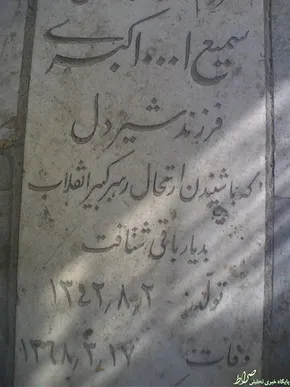 سمیع ا... اکبری
فرزند شیردل
که با شنیدن ارتحال رهبر کبیر انقلاب
بدیار باقی شتافت
تولد: ۱۳۴۲٫۸٫۲
وفات: ۱۳۶۸٫۳٫۱۷
پایگاه خبری تحلیلی صراط